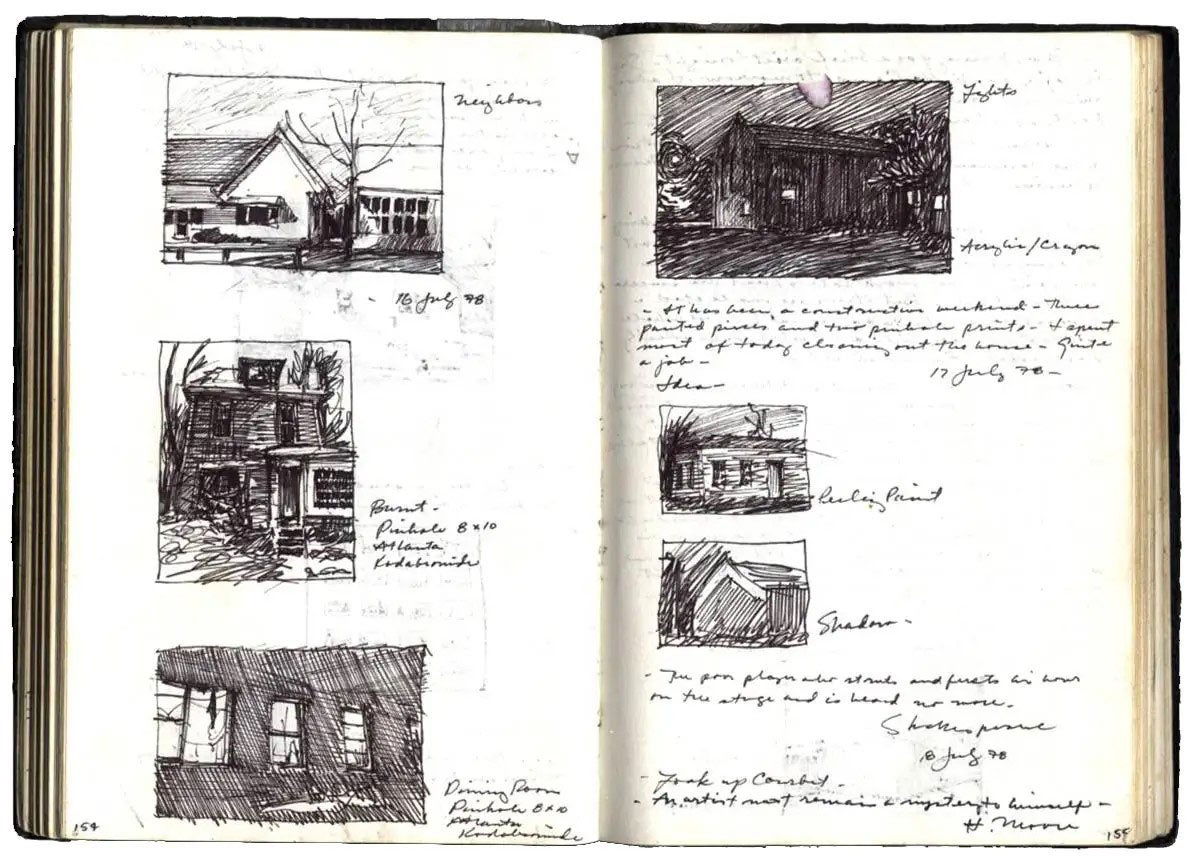 Neighbors
- 16 July 78
Burnt -
Pinhole 8x10
Atlanta
Kodabromide
Dining Room
Pinhole 8x10
Atlanta
Kodabromide
154
Lights
Acrylic/Crayon
- It has been a constructive weekend - Three
painted pieces and two pinhole prints - I spent
most of today cleaning out the house - Quite
a job -
17 July 78 -
Idea -
Leslie Paint
Shadow -
- The poor player who struts and frets his hour
on the stage and is heard no more.
Shakespeare
18 July 78
- Look up Courbet.
- An artist must remain a mystery to himself -
H. Moore